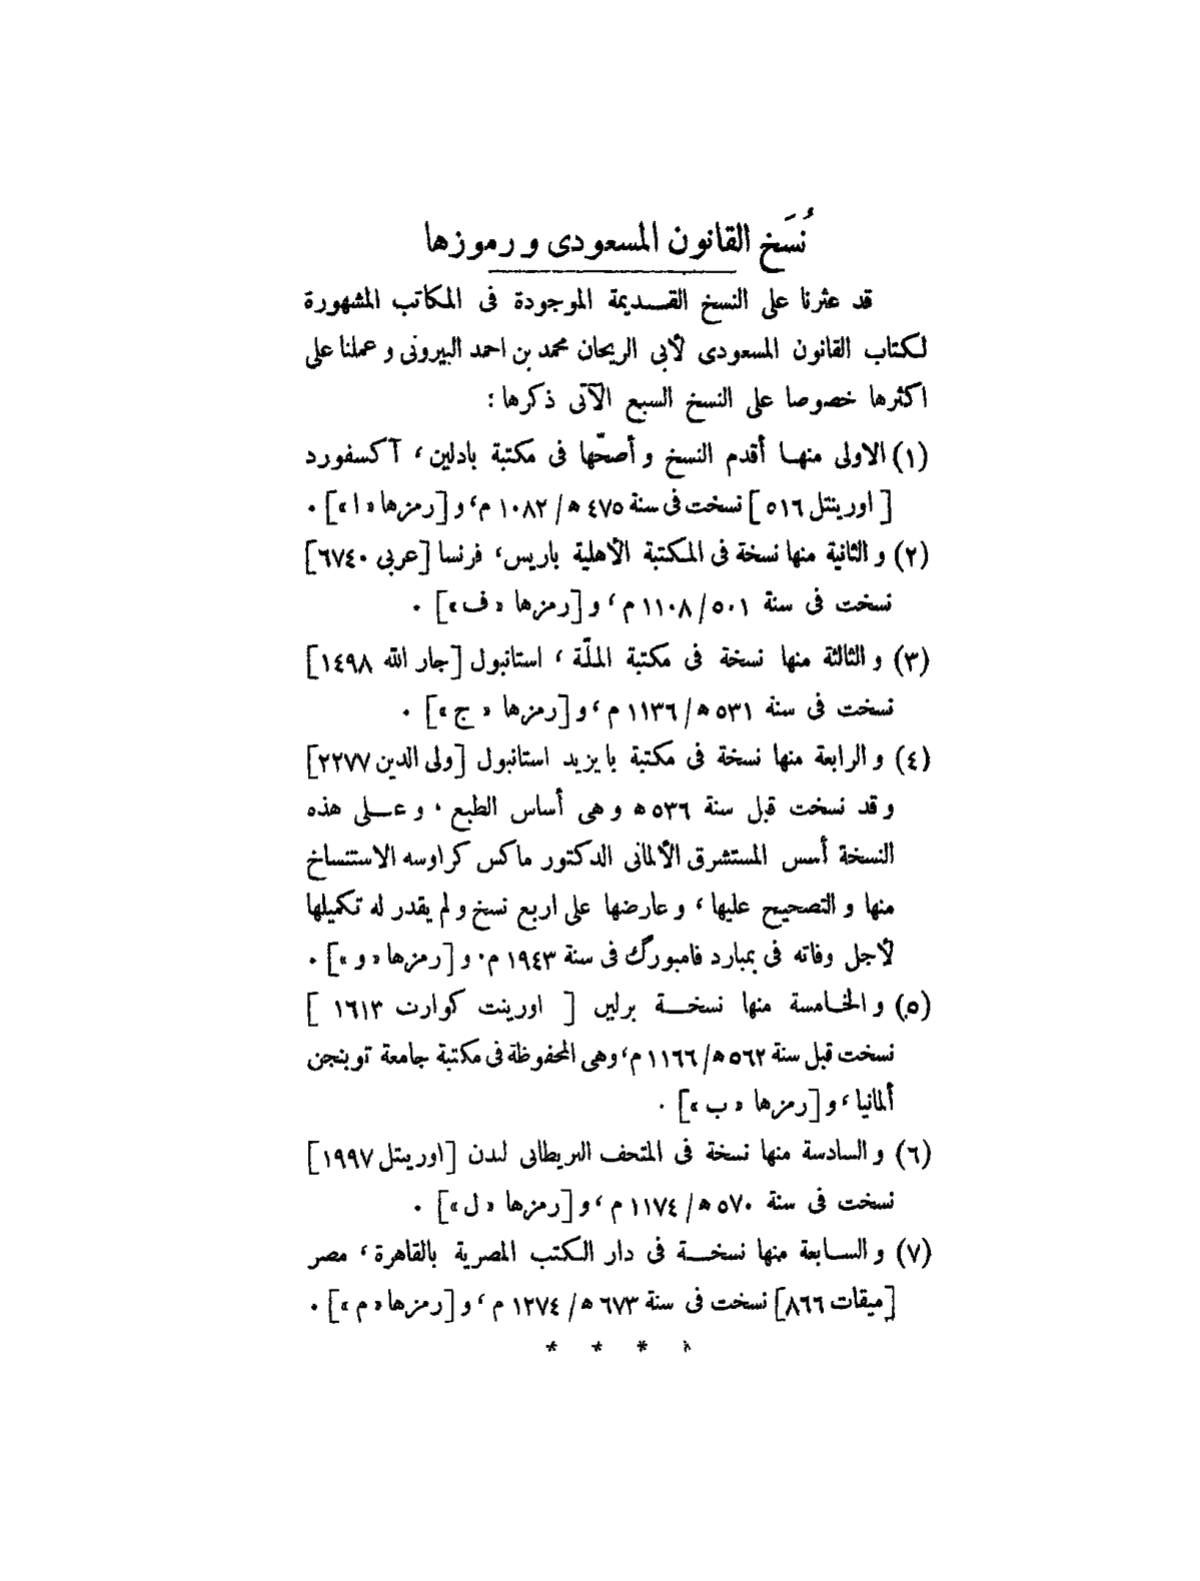 نُسَخ القانون المسعودى و رموزها
قد عثرنا على النسخ القـــديمة الموجودة فى المكاتب المشهورة
لكتاب القانون المسعودى لأبى الريحان محمد بن احمد البيرونى و عملنا على
اكثرها خصوصا على النسخ السبع الآتى ذكرها :
(١) الاولى منهــا أقدم النسخ و أصحّها فى مكتبة بادلين ، آكسفورد
[ اورينتل ٥١٦ ] نسخت فى سنة ٤٧٥ ه / ١٠٨٢ م، و [رمزها « ا »] .
(٢) و الثانية منها نسخة فى المكتبة الأهلية باريس، فرنسا [عربى ٦٧٤٠]
نسخت فى سنة ٥٠١ / ١١٠٨ م ، و [رمزها « ف »] .
(٣) و الثالثة منها نسخة فى مكتبة الملّة ، استانبول [جار الله ١٤٩٨]
نسخت فى سنة ٥٣١ ه / ١١٣٦ م ، و [رمزها « ج »] .
(٤) و الرابعة منها نسخة فى مكتبة با يزيد استانبول [ولى الدين ٢٢٧٧]
و قد نسخت قبل سنة ٥٣٦ ه و هى أساس الطبع . و عـــلى هذه
النسخة أسس المستشرق الألمانى الدكتور ماكس كراوسه الاستنساخ
منها و التصحيح عليها ، و عارضها على اربع نسخ و لم يقدر له تكميلها
لأجل وفاته فى بمبارد فامبورگ فى سنة ١٩٤٣ م . و [رمزها « و »] .
(٥) و الخـامسة منها نسخـــة برلين [ اورينت كوارت ١٦١٣ ]
نسخت قبل سنة ٥٦٢ ه / ١١٦٦ م، وهى المحفوظة فى مكتبة جامعة توبنجن
ألمانيا ، و [رمزها « ب »] .
(٦) و السادسة منها نسخة فى المتحف البريطانى لندن [اورينتل ١٩٩٧]
نسخت فى سنة ٥٧٠ ه / ١١٧٤ م ، و [رمزها « ل »] .
(٧) و الســابعة منها نسخـــة فى دار الكتب المصرية بالقاهرة ، مصر
[ميقات ٨٦٦] نسخت فى سنة ٦٧٣ ه / ١٢٧٤ م ، و [رمزها « م »] .
* * * *